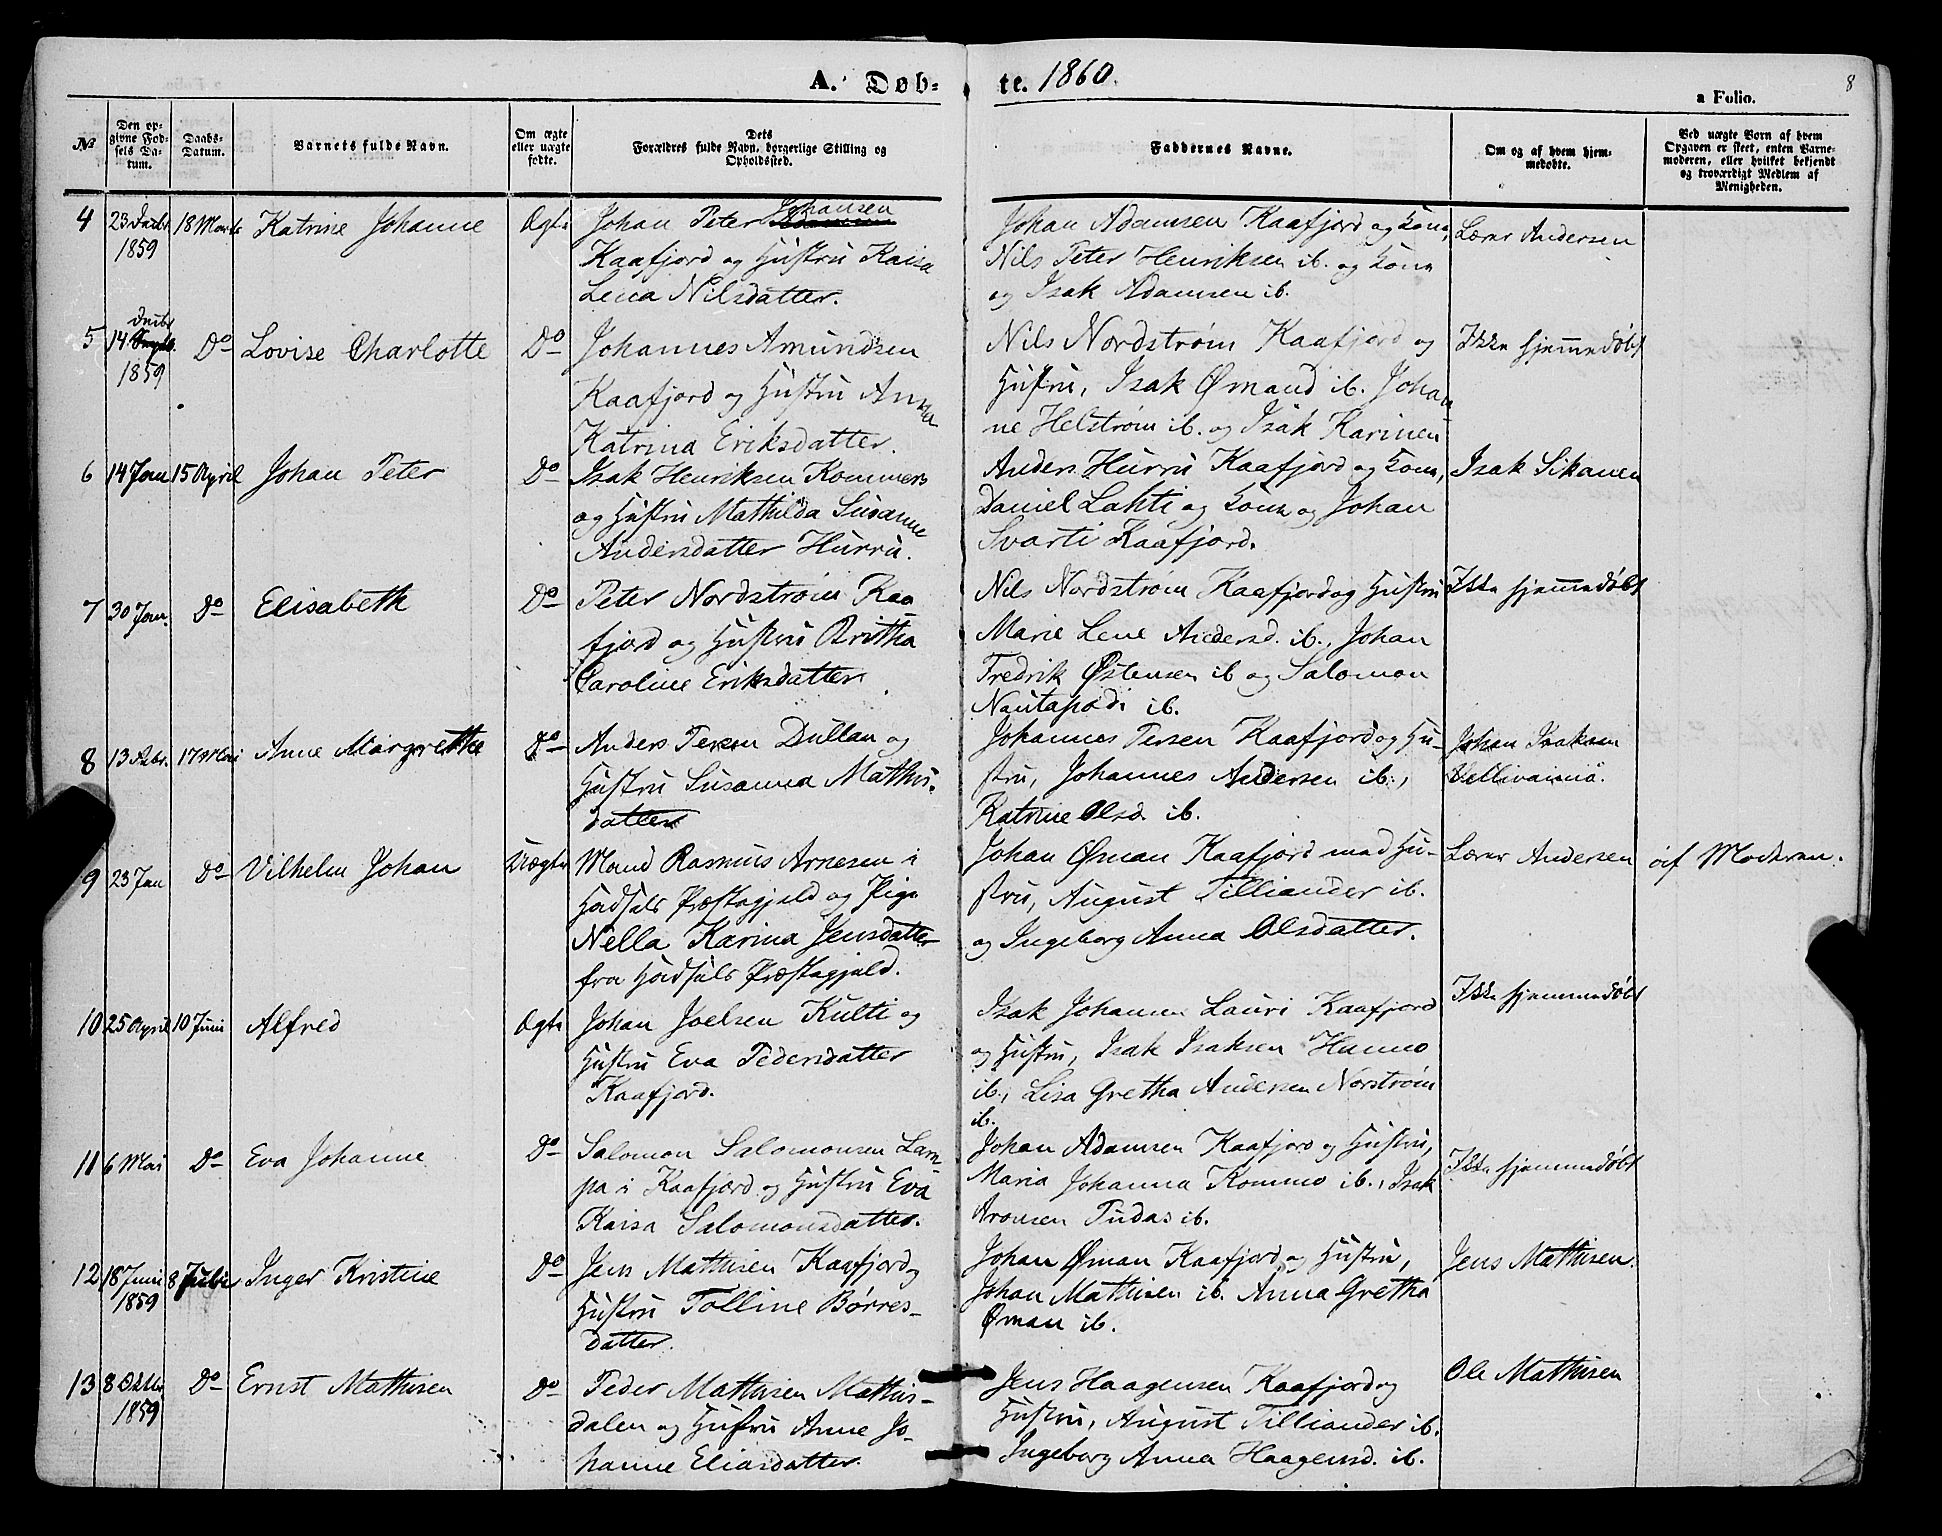 A. Døb-
te. 1860.
8
a Folio.
№
Den op-
givne Fød-
sels Da-
tum.
Daabs-
Datum.
Barnets fulde Navn.
Om ægte
eller uægte
fødte.
Dets
Forældres fulde Navn, borgerlige Stilling og
Opholdssted.
Faddernes Navne.
Om og af hvem hjem-
medøbte.
Ved uægte Børn af hvem
Opgaven er skeet, enten Barne-
moderen, eller hvilket bekjendt
og troværdigt Medlem af
Menigheden.
4
23 Decbr
1859
18 Marts
Katrine Johanne
Ægte
Johan Peter Johansen
Kaafjord og Hustru Kaisa
Lena Nilsdatter.
Johan Adamsen Kaafjord og Kone,
Nils Peter Henriksen ib. og Kone
og Isak Adamsen ib.
Lærer Andersen
5
Decbr
14
1859
Do
Lovise Charlotte
Do
Johannes Amundsen
Kaafjord og Hustru Anna
Katrina Eriksdatter.
Nils Nordstrøm Kaafjord og
Hustru, Isak Ømand ib. Johan
ne Helstrøm ib. og Isak Karinen
Ikke hjemmedøbt
6
14 Jan
15 April
Johan Peter
Do
Isak Henriksen Kommers
og Hustru Mathilda Susanne
Andersdatter Hurru.
Anders Hurru Kaafjord og Kone,
Daniel Lahti og Kone og Johan
Svarti Kaafjord.
Isak Sikanen
7
30 Jan.
Do
Elisabeth
Do
Peter Nordstrøm Kaa-
fjord og Hustru Britha
Caroline Eriksdatter.
Nils Nordstrøm Kaafjord og Hustru
Marie Lene Andersd. ib., Johan
Fredrik Østensen ib og Salomon
Nautapodi ib.
Ikke hjemmedøbt
8
13 Febr.
17 Mai
Anne Margrethe
Do
Anders Persen Dullan og
Hustru Susanna Mathis-
datter
Johannes Persen Kaafjord og Hu-
stru, Johannes Andersen ib.,
Katrine Olsd. ib.
Johan Isaksen
9
23 Jan
Do
Vilhelm Johan
Uægte
Mand Rasmus Arnesen i
Hadsels Præstegjeld og Pige
Nella Karina Jensdatter
fra Hadsels Præstegjeld.
Johan Øman Kaafjord med Hu-
stru, August Tilliander ib.
og Ingeborg Anna Olsdatter.
Lærer Andersen
af Moderen.
10
25 April
10 Juni
Alfred
Ægte
Johan Joelsen Kulti og
Hustru Eva Pedersdatter
Kaafjord.
Isak Johannes Lauri Kaafjord
og Hustru, Isak Isaksen Hanno
ib., Lisa Gretha Andersen Norstrøm
ib.
Ikke hjemmedøbt
11
6 Mai
Do
Eva Johanne
Do
Salomon Salomonsen Lam-
pa i Kaafjord og Hustru Eva
Kaisa Salomonsdatter.
Johan Adamsen Kaafjord og Hustru,
Maria Johanna Kommo ib., Isak
Aronsen Tudas ib.
Ikke hjemmedøbt
12
18 Juni
1859
8 Julie
Inger Kristine
Do
Jens Mathisen Kaafjord og
Hustru Tolline Børres-
datter.
Johan Øman Kaafjord og Hustru,
Johan Mathisen ib. Anna Gretha
Øman ib.
Jens Mathisen.
13
8 Oktbr
1859
Do
Ernst Mathisen
Do
Peder Mathisen Mathis-
dalen og Hustru Anne Jo-
hanne Eliasdatter
Jens Haagensen Kaafjord og
Hustru, August Tilliander ib.
Ingeborg Anna Haagensd. ib.
Ole Mathisen